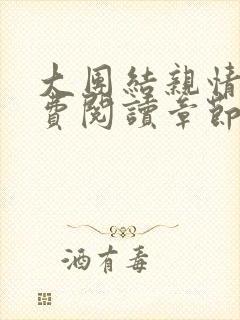 大團結親情
費閱讀章節
酒有毒